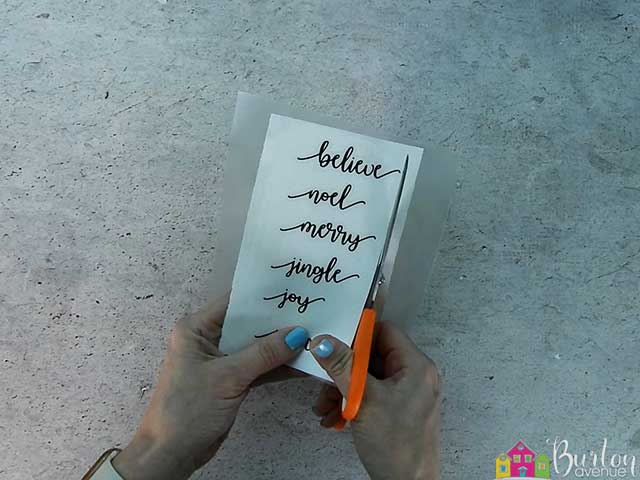 believe
noel
merry
jingle
joy
Burton
avenue